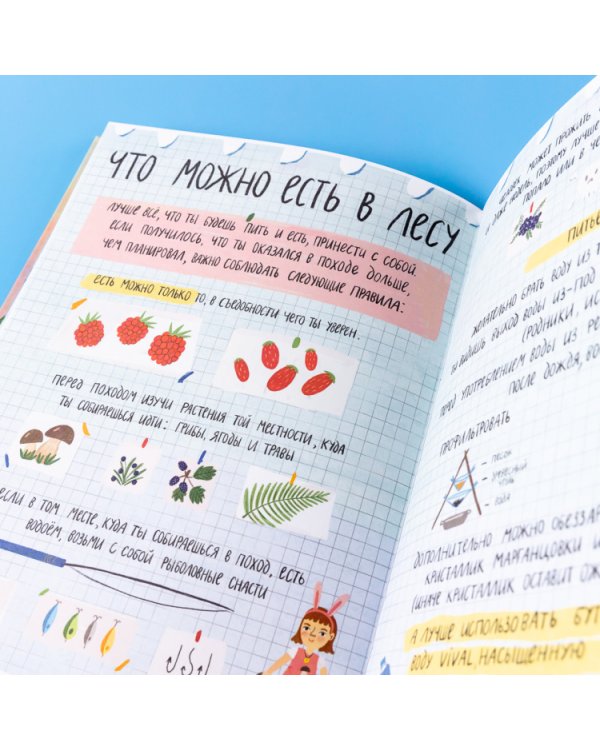 ЧТО МОЖНО ЕСТЬ В ЛЕСУ
ЛУЧШЕ ВСЁ, ЧТО ТЫ БУДЕШЬ ПИТЬ И ЕСТЬ, ПРИНЕСТИ С СОБОЙ.
ЕСЛИ ПОЛУЧИЛОСЬ, ЧТО ТЫ ОКАЗАЛСЯ В ПОХОДЕ ДОЛЬШЕ,
ЧЕМ ПЛАНИРОВАЛ, ВАЖНО СОБЛЮДАТЬ СЛЕДУЮЩИЕ ПРАВИЛА:
ЕСТЬ МОЖНО ТОЛЬКО ТО, В СЪЕДОБНОСТИ ЧЕГО ТЫ УВЕРЕН.
ПЕРЕД ПОХОДОМ ИЗУЧИ РАСТЕНИЯ ТОЙ МЕСТНОСТИ, КУДА
ТЫ СОБИРАЕШЬСЯ ИДТИ: ГРИБЫ, ЯГОДЫ И ТРАВЫ
ЕСЛИ В ТОМ МЕСТЕ, КУДА ТЫ СОБИРАЕШЬСЯ В ПОХОД, ЕСТЬ
ВОДОЁМ, ВОЗЬМИ С СОБОЙ РЫБОЛОВНЫЕ СНАСТИ
ЧЕЛОВЕК МОЖЕТ ПРОЖИТЬ
ДАЖЕ НЕДЕЛЬ, ПОЭТОМУ ЛУЧШЕ
ПОПАЛО ИЛИ В ЧЕ
ПИТЬЕ
ЖЕЛАТЕЛЬНО БРАТЬ ВОДУ ИЗ Т
ТЫ ВИДИШЬ ВЫХОД ВОДЫ ИЗ-ПОД
(РОДНИКИ, ИС
ПЕРЕД УПОТРЕБЛЕНИЕМ ВОДЫ ИЗ РЕ
ПОСЛЕ ДОЖДЯ, ВО
ПРОФИЛЬТРОВАТЬ
ПЕСОК
ДРЕВЕСНЫЙ
УГОЛЬ
ВОДА
ДОПОЛНИТЕЛЬНО МОЖНО ОБЕЗЗАР
КРИСТАЛЛИК МАРГАНЦОВКИ И
(ИНАЧЕ КРИСТАЛЛИК ОСТАВИТ ОЖ
А ЛУЧШЕ ИСПОЛЬЗОВАТЬ БУТ
ВОДУ VIVAL, НАСЫЩЕННУЮ